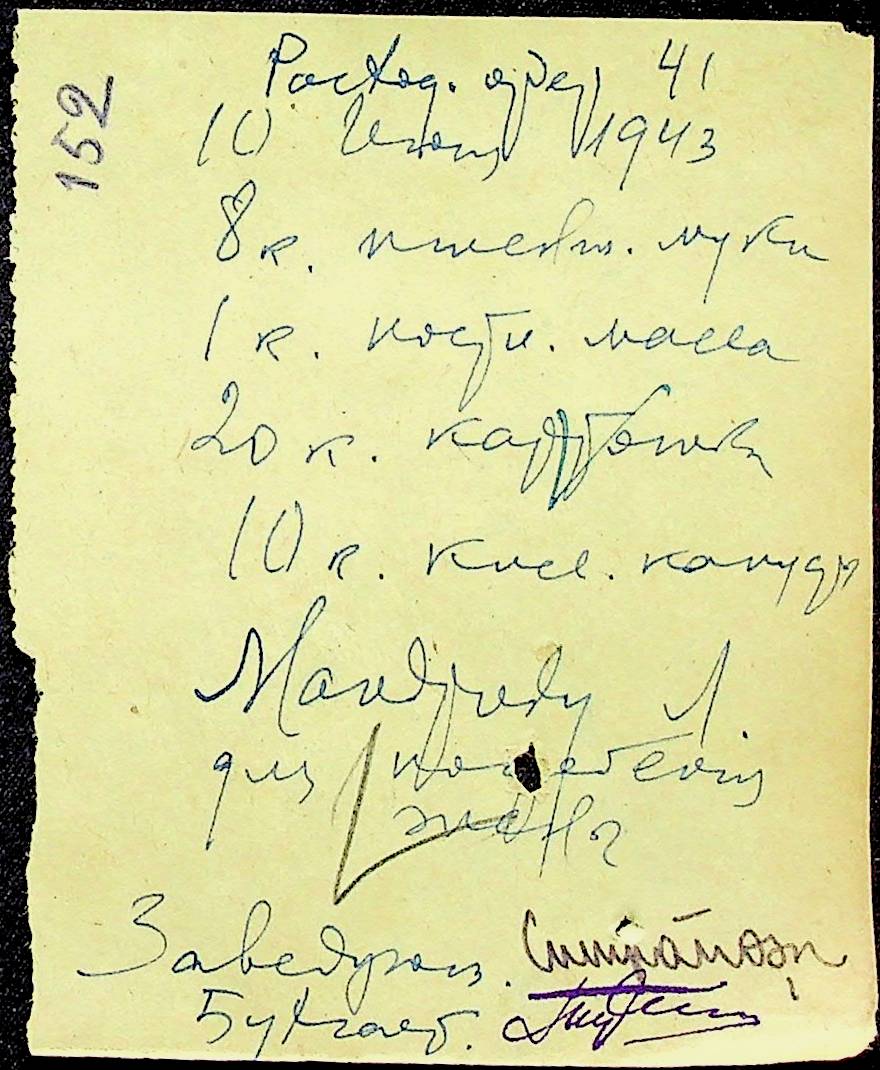 152
Расход. ордер 41
10 Июня 1943
8 к. пшенич. муки
1 к. постн. масла
20 к. картошки
10 к. кисл. капусты
Л
для погребения
жены
Заведующ.
Бухгалт.